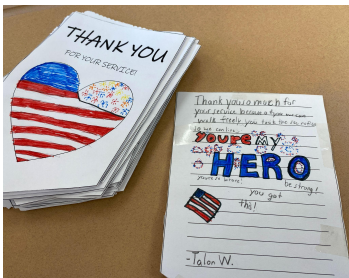 THANK YOU
FOR YOUR SERVICE!
Thank you so much for
your service because of you we can
walk freely you took the
so we can live.
You're MY
HERO
you're so brave! be strong!
you got
this!
-Talon W.